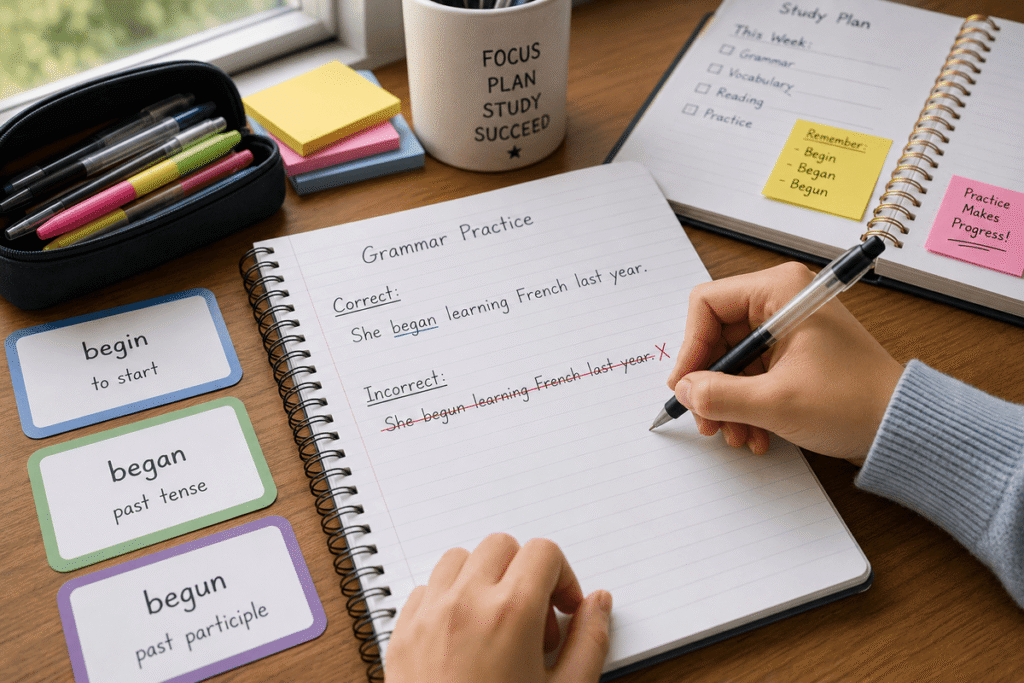 FOCUS
PLAN
STUDY
SUCCEED
Study Plan
This Week:
Grammar
Vocabulary
Reading
Practice
Remember:
- Begin
- Began
- Begun
Practice
Makes
Progress!
Grammar Practice
Correct:
She began learning French last year.
Incorrect:
She begun learning French last year. X
begin
to start
began
past tense
begun
past participle